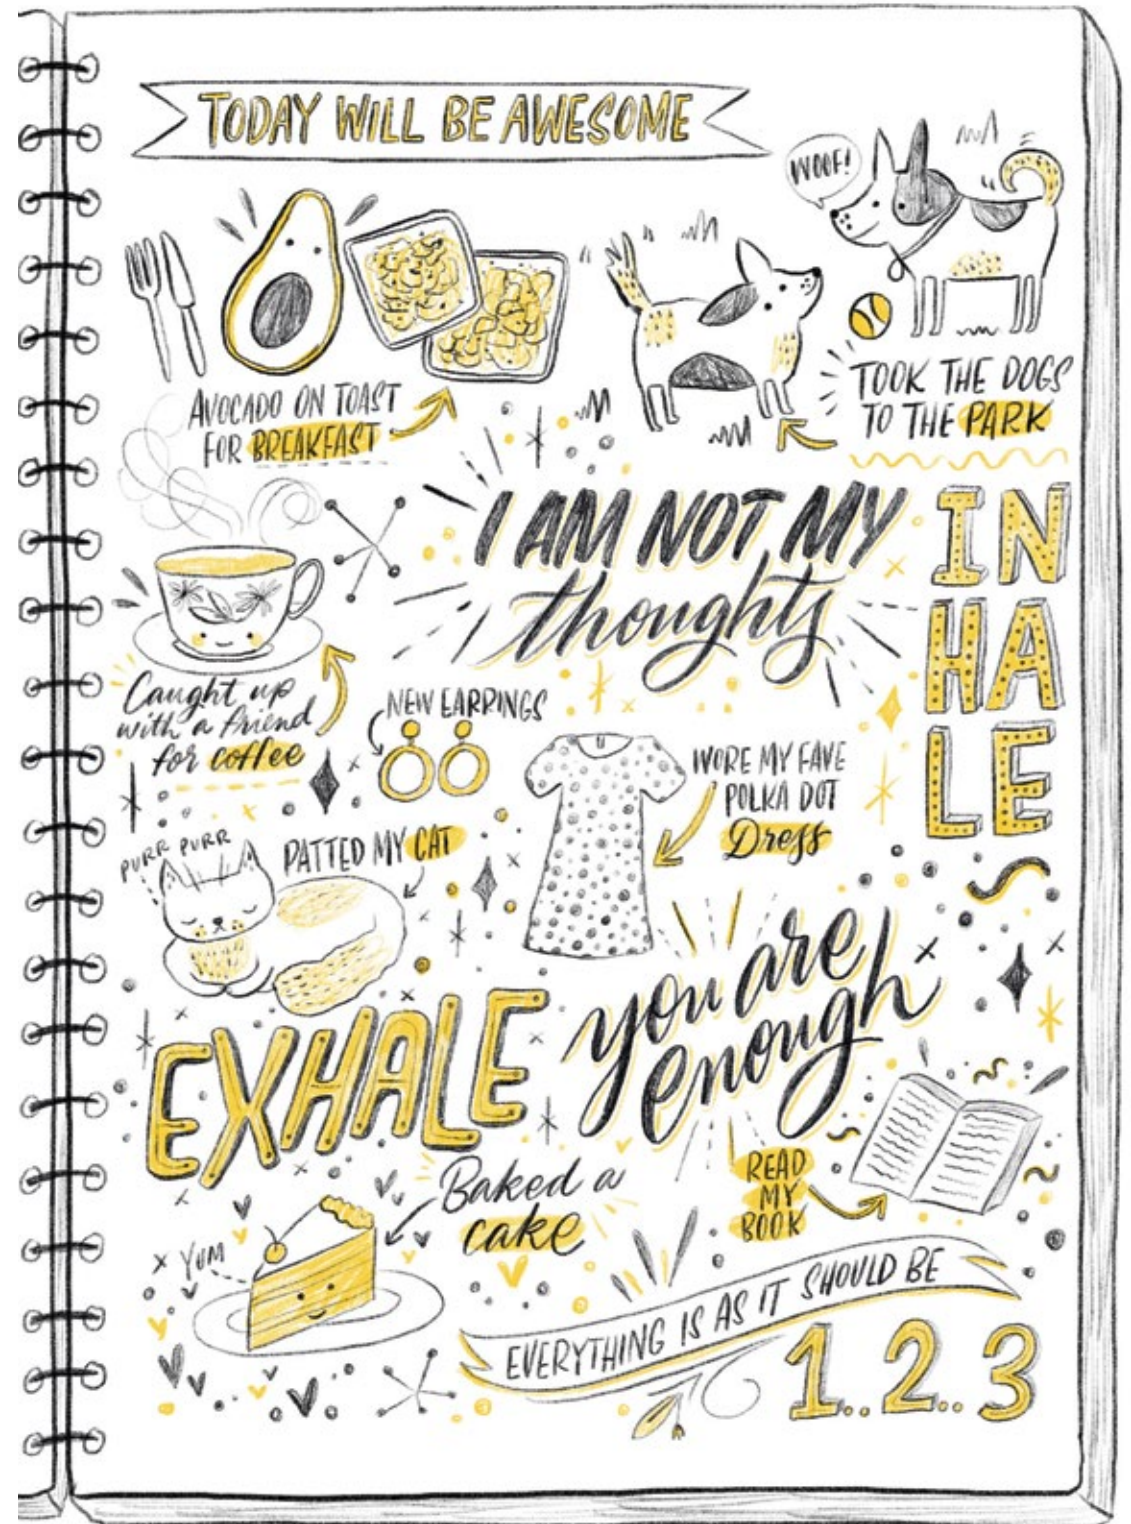 TODAY WILL BE AWESOME
WOOF!
AVOCADO ON TOAST
FOR BREAKFAST
TOOK THE DOGS
TO THE PARK
I AM NOT MY
thoughts
IN
HA
LE
Caught up
with a friend
for coffee
NEW EARRINGS
WORE MY FAVE
POLKA DOT
Dress
PURR PURR
PATTED MY CAT
EXHALE
you are
enough
Baked a
cake
YUM
READ
MY
BOOK
EVERYTHING IS AS IT SHOULD BE
1..2..3